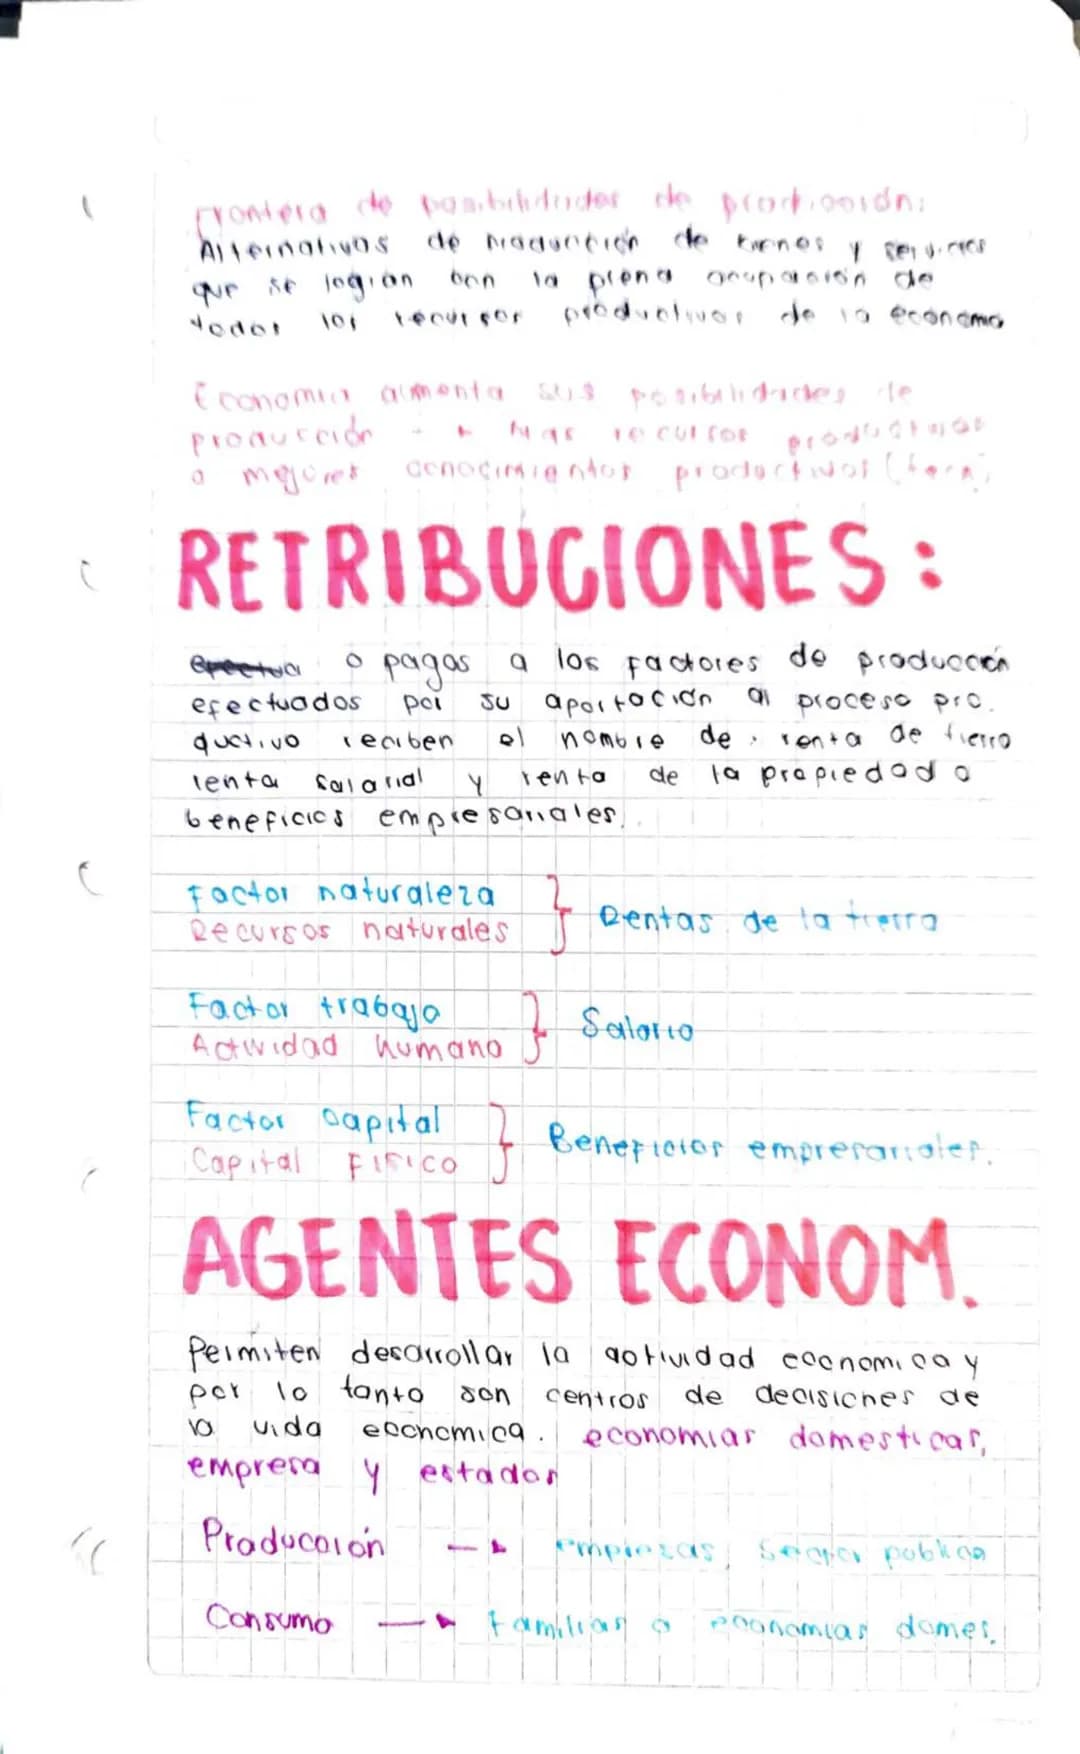 Frontera de posibilidades de producción:
Alternativas de producción de bienes y servicios
que se logran con la plena ocupación de
todos los recursos productivos de la economa
Economia aumenta sus posibilidades de
producción → Mas recursos productivos
o mejores conocimientos productivos (tecn)
RETRIBUCIONES:
efectua o pagos a los factores de producción
efectuados por su aportación al proceso pro.
ductivo reciben el nombre de: renta de tierra
renta salarial y renta de la propiedad o
beneficios empresariales.
Factor naturaleza
Recursos naturales } Rentas de la tierra
Factor trabajo
Actividad humana } Salario
Factor capital
Capital Fisico } Beneficios empresariales.
AGENTES ECONOM.
Permiten desarrollar la actividad economica y
por lo tanto son centros de decisiones de
la vida economica. economias domesticas,
empresa y estados
Producción → empresas, sector publico
Consumo → familias o economias domes.